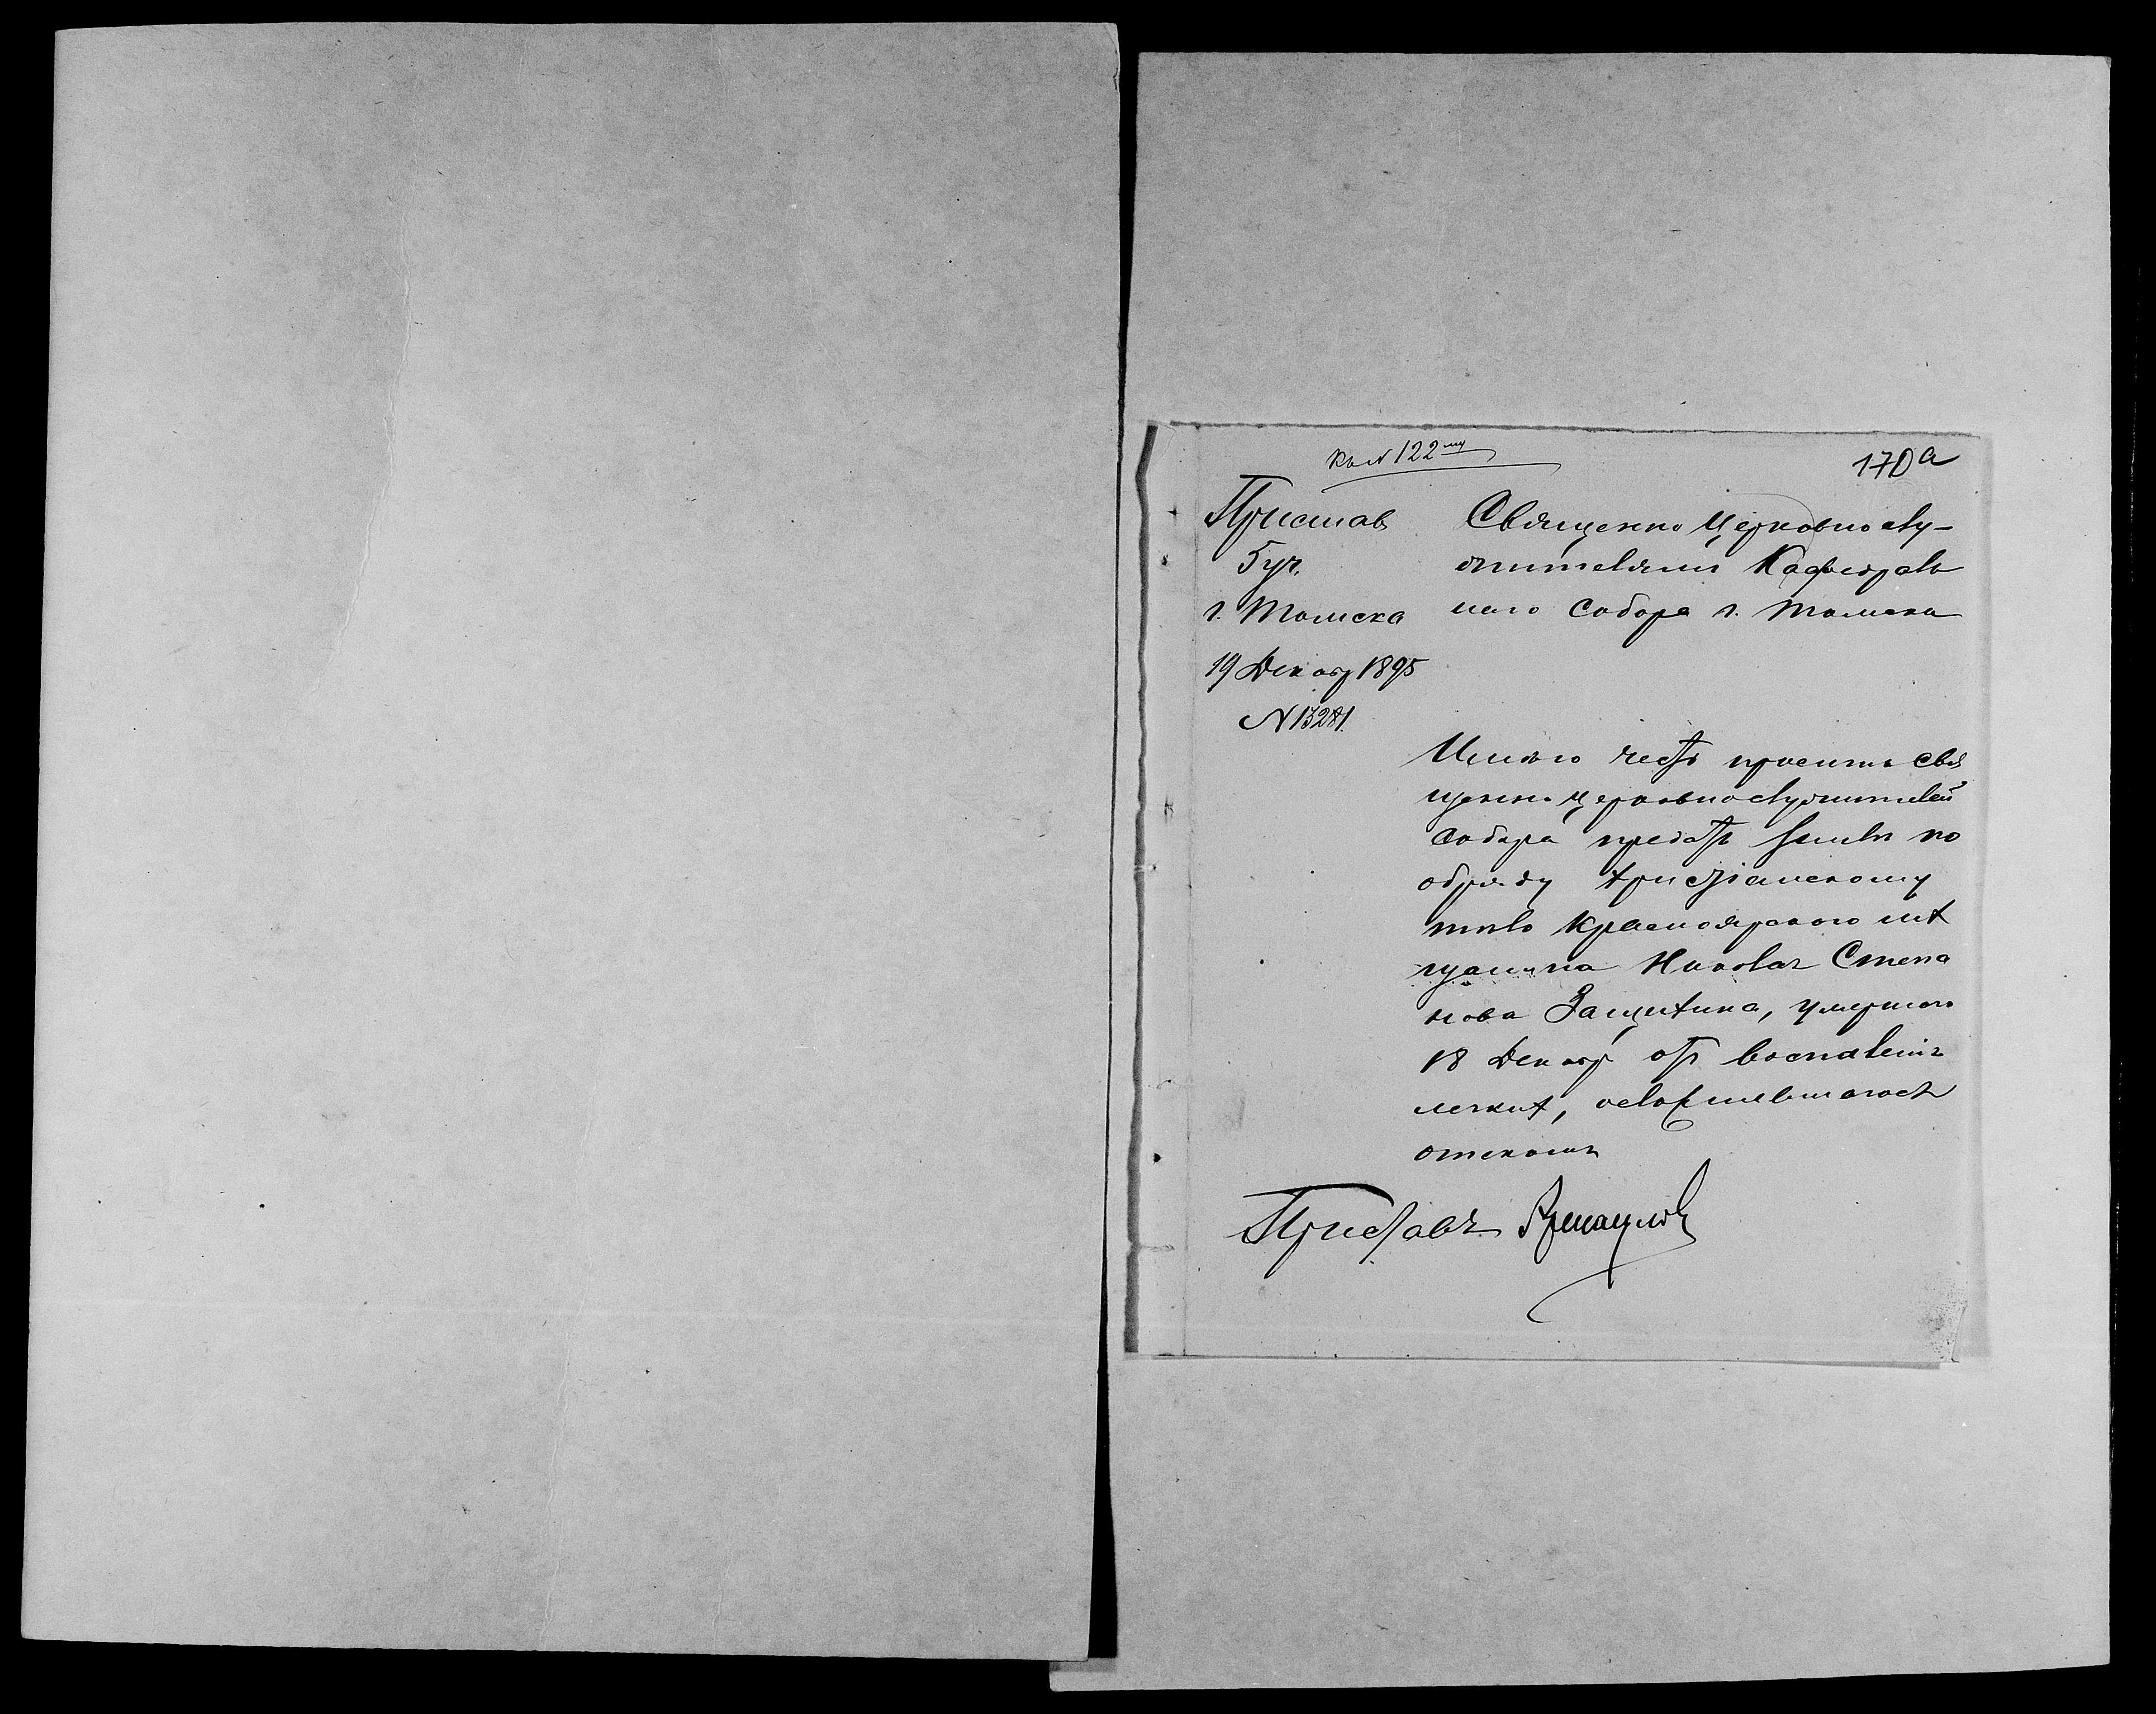 Къ № 122му
170а
Приставъ
5 уч.
г. Томска
19 Декабр 1895
№ 13281.
Священно Церковнослу-
жителямъ Кафедраль
наго Собора г. Томска
Имѣю честь просить Свя
щенно церковнослужителей
Собора предать землѣ по
обряду христіанскому
тѣло Красноярскаго мѣ
щанина Николая Степа
нова Защихина, умершаго
18 Декабр отъ воспаленія
легкихъ, осложнившагося
отекомъ
Приставъ